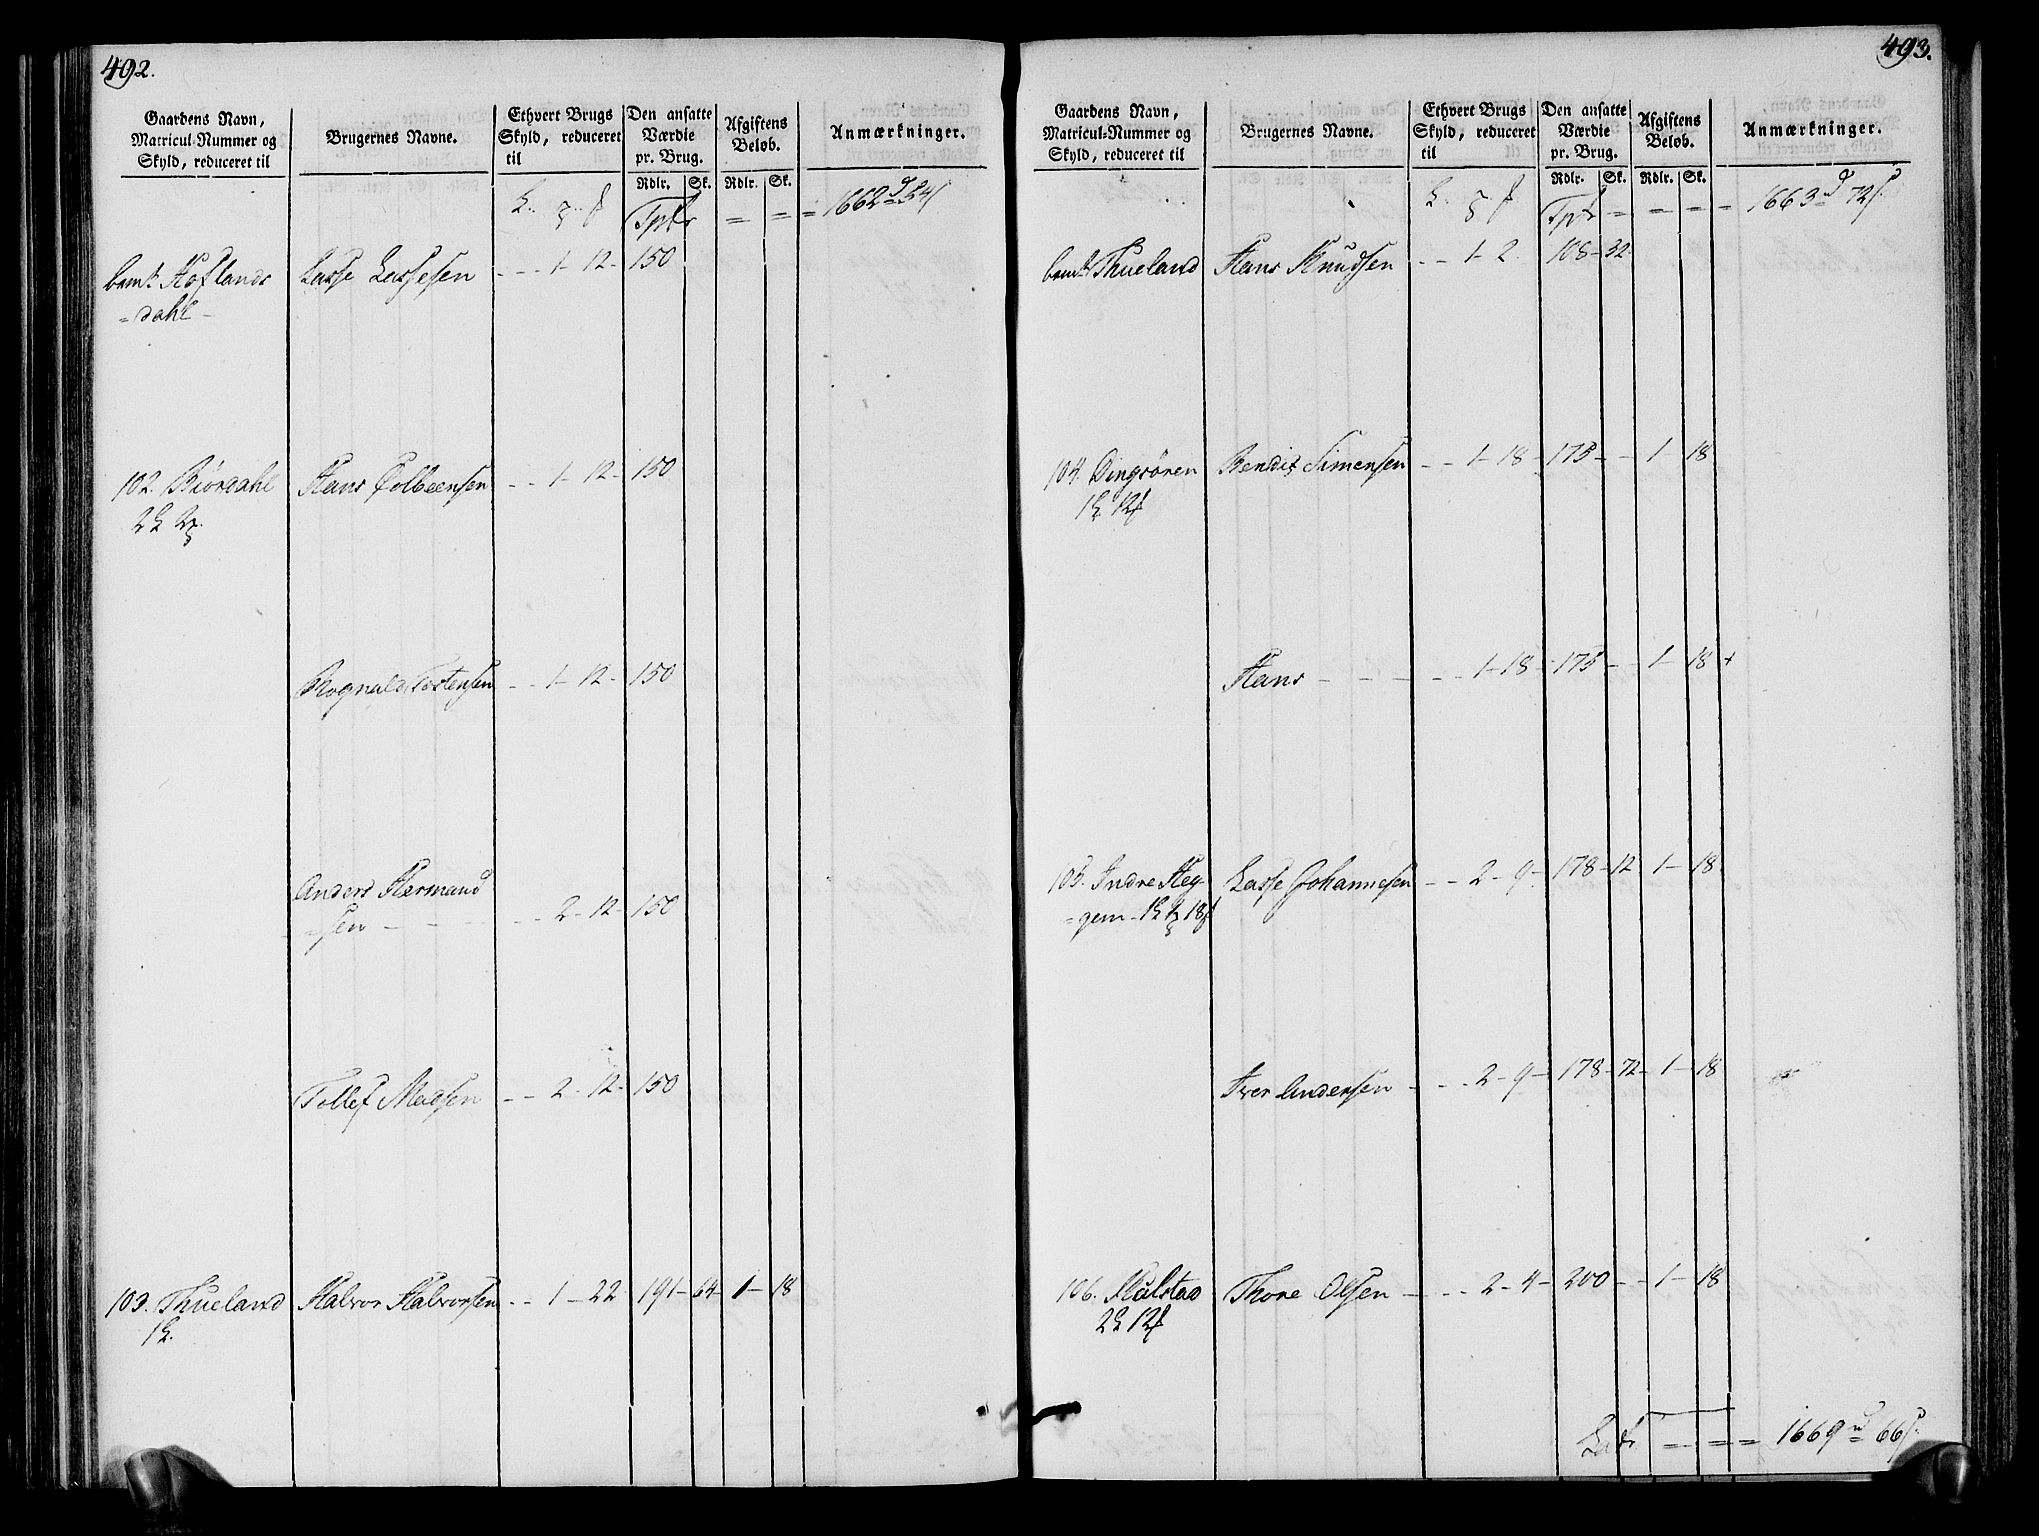 492.
Gaardens Navn,
Matricul-Nummer og
Skyld, reduceret til
Brugernes Navne.
Ethvert Brugs
Skyld, reduceret
til
Den ansatte
Værdie
pr. Brug.
Afgiftens
Beløb.
Anmærkninger.
Rdlr. Sk. Rdlr. Sk.
Tptr = = = 1662 d 54 s
bemt. Hoflands Lasse Lassesen - - - 1 - 12 - 150
= dahl -
102. Biördahl Hans Tolbeensen - - 1 - 12 - 150
2
Rognald Tostensen - - 1 - 12 - 150
Anders Hermand
=sen - - - - 2 - 12 - 150
Tollef Madsen - - 2 - 12 - 150
103. Thueland Halvor Halvorsen - - 1 - 22 191 - 64 - 1 - 18
1
493.
Gaardens Navn,
Matricul-Nummer og
Skyld, reduceret til
Brugernes Navne.
Ethvert Brugs
Skyld, reduceret
til
Den ansatte
Værdie
pr. Brug.
Afgiftens
Beløb.
Anmærkninger.
Rdlr. Sk. Rdlr. Sk.
Tptr = = = = 1663 d 72 s.
bemt. Thueland Hans Knudsen - - 1 - 2. 108 - 32
104. Dingsören Bendix Simensen - - 1 - 18 - 175 - - 1 - 18
Hans - - - - - 1 - 18 - 175 - - 1 - 18 +
105. Indre Heg- Lasse Johannesen - - 2 - 9 - 178 - 12 1 - 18
=gem -
Iver Andersen - - - 2 - 9 - 178 - 72 - 1 - 18
106. Hulstad Thore Olsen - - - 2 - 4 - 200 - - 1 - 18
Latr = = = 1669 d 66 s.